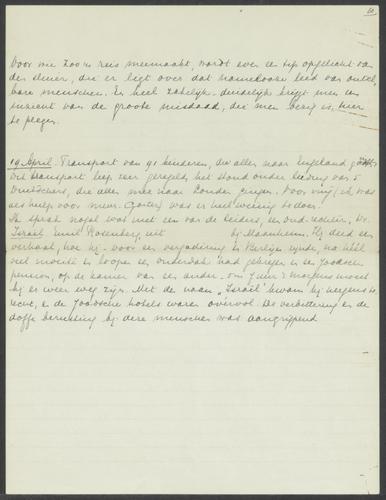 10
Voor wie zoo'n reis meemaakt, wordt even een tip opgelicht van
den sluier, die er ligt over dat namelooze leed van ontel-
bare menschen. En heel zakelijk duidelijk krijgt men een
inzicht van de groote misdaad, die men bezig is, hier
te plegen.
19 April. Transport van 91 kinderen, die allen naar Engeland
Dit transport liep zeer geregeld, het stond onder leiding van 5
Duitschers, die allen mee naar Londen gingen. Voor mij (ik was
als hulp voor mevr. ) was er heel weinig te doen.
Ik sprak nogal wat met een van de leiders, een oud-rechter, Dr.
Israël Emil Rosenberg uit bij Mannheim. Hij deed een
verhaal, hoe hij - voor een vergadering in Berlijn zijnde, na heel
veel moeite en loopen een onderdak had gekregen in een Joodsch
pension, op de kamer van een ander - om 7 uur 's morgens moest
hij er weer weg zijn. Met de naam "Israël" kwam hij nergens te-
recht, en de Joodsche hotels waren overvol. De verbittering en de
doffe berusting bij deze menschen was aangrijpend